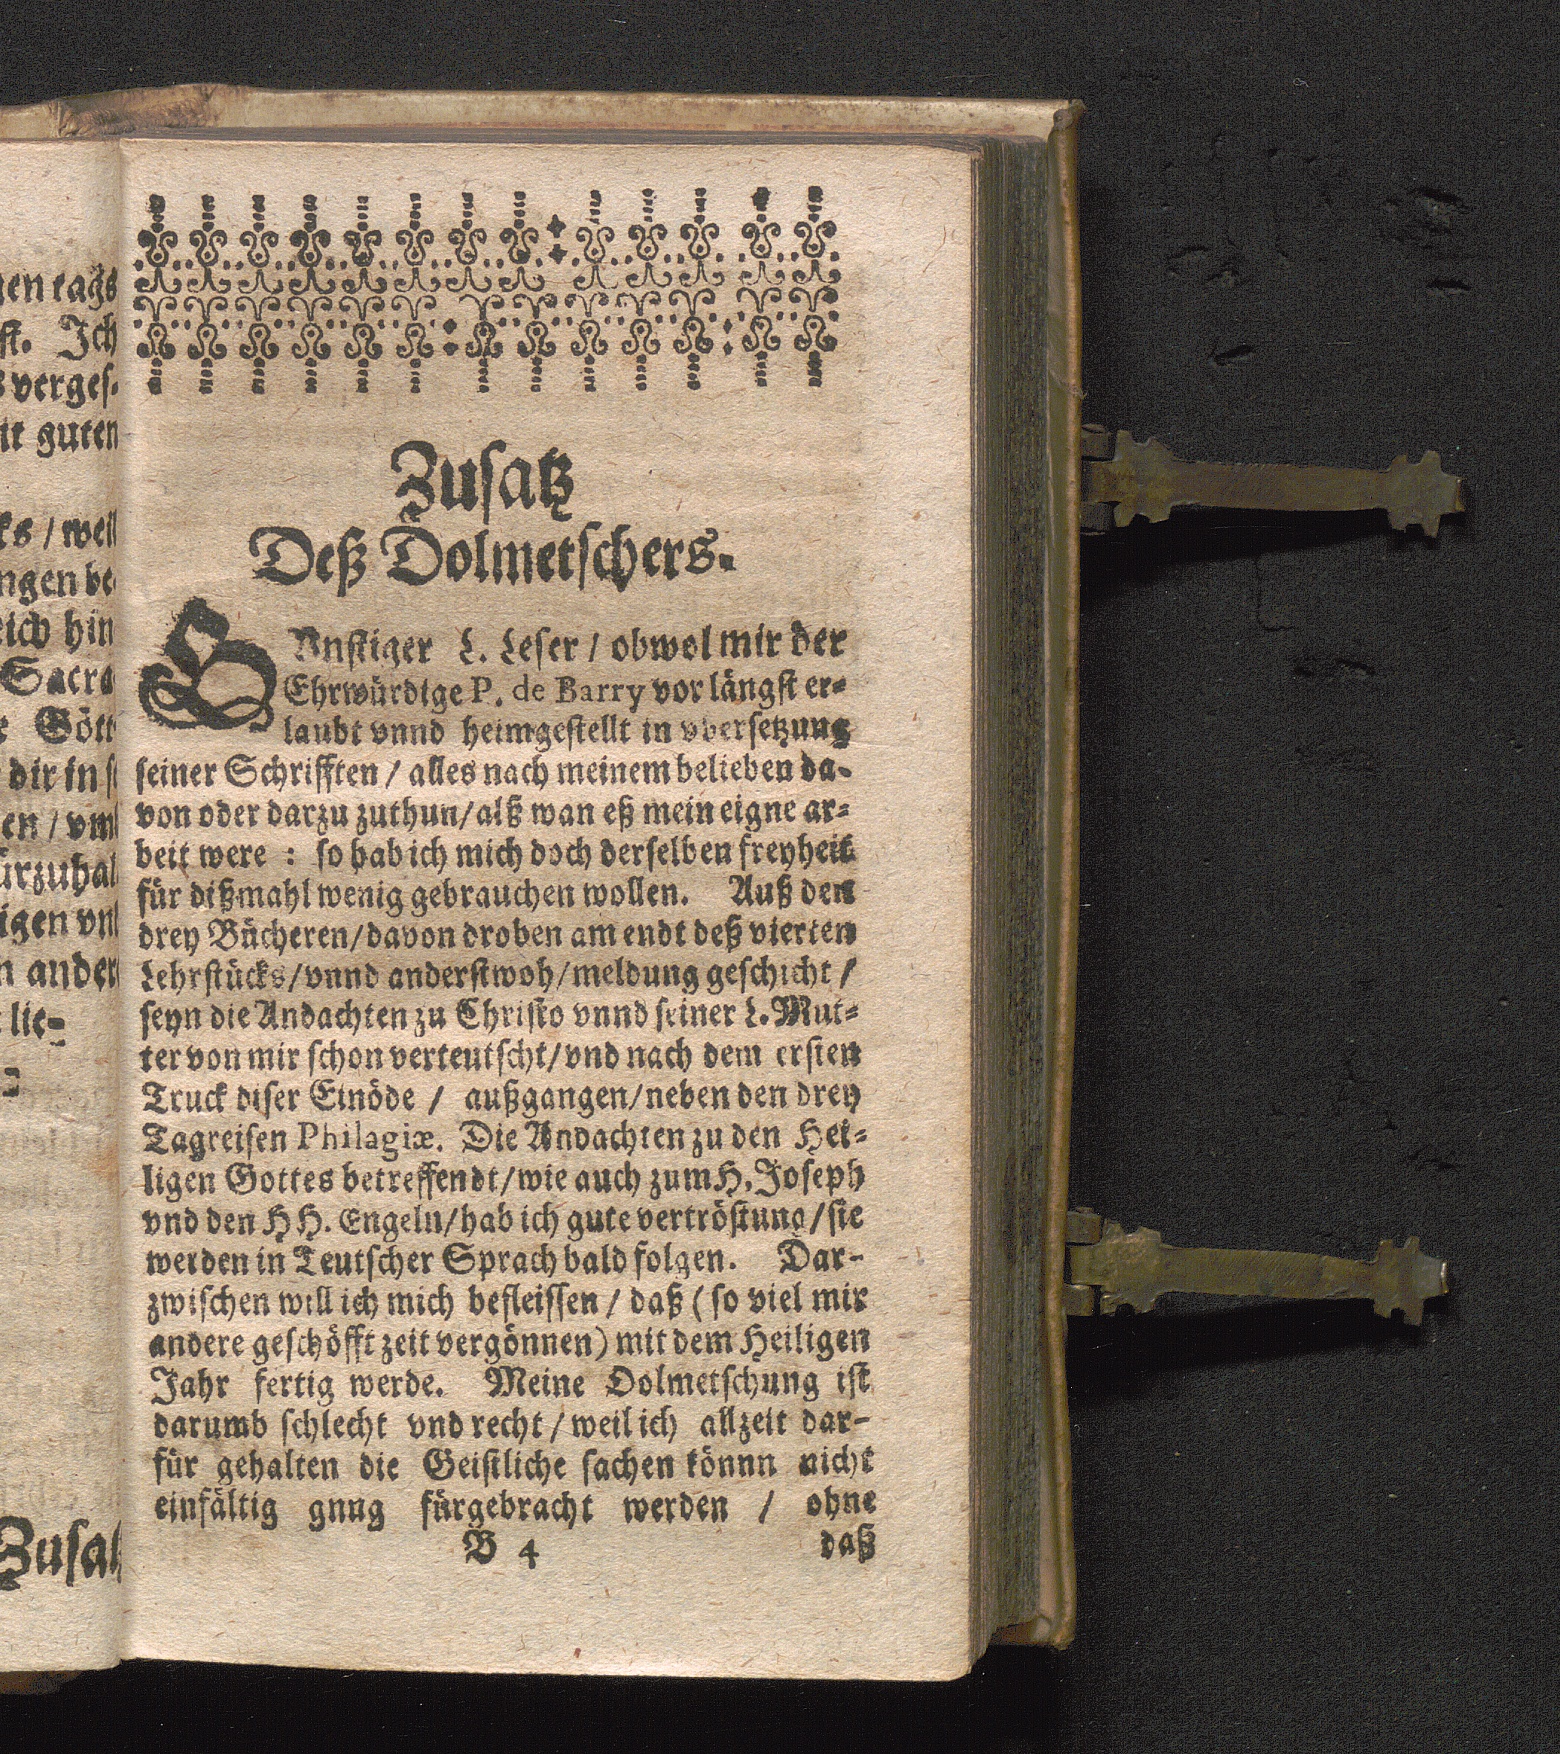 gen tags
st. Ich
verges-
it guten
ks / weil
ngen be
eich hin
Sacra
r Gött
dir in s
en / vm
ürzuhal
igen vn
n ander
lie-
Zusatz
Zusatz
Deß Dolmetschers.
GVnstiger L. Leser / obwol mir der
Ehrwürdige P. de Barry vor längst er-
laubt vnnd heimgestellt in vbersetzung
seiner Schrifften / alles nach meinem belieben da-
von oder darzu zuthun / alß wan eß mein eigne ar-
beit were : so hab ich mich doch derselben freyheit
für dißmahl wenig gebrauchen wollen. Auß den
drey Bücheren / davon droben am endt deß vierten
Lehrstücks / vnnd anderstwoh / meldung geschicht /
seyn die Andachten zu Christo vnnd seiner L. Mut-
ter von mir schon verteutscht / vnd nach dem ersten
Truck diser Einöde / außgangen / neben den drey
Tagreisen Philagiæ. Die Andachten zu den Hei-
ligen Gottes betreffendt / wie auch zum H. Joseph
vnd den HH. Engeln / hab ich gute vertröstung / sie
werden in Teutscher Sprach bald folgen. Dar-
zwischen will ich mich befleissen / daß ( so viel mir
andere geschöfft zeit vergönnen ) mit dem Heiligen
Jahr fertig werde. Meine Dolmetschung ist
darumb schlecht vnd recht / weil ich allzeit dar-
für gehalten die Geistliche sachen könnn nicht
einfältig gnug fürgebracht werden / ohne
B 4 daß